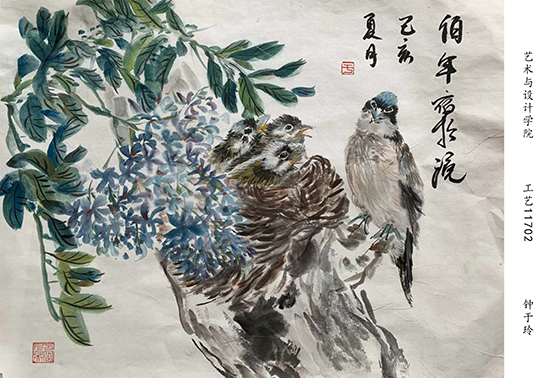 伯年
己亥
夏月
艺术与设计学院 工艺11702 钟于玲